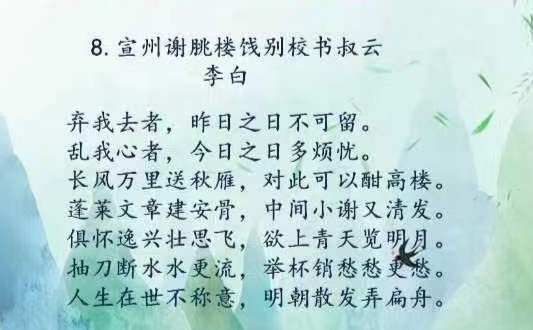 8.宣州谢朓楼饯别校书叔云
李白
弃我去者，昨日之日不可留。
乱我心者，今日之日多烦忧。
长风万里送秋雁，对此可以酣高楼。
蓬莱文章建安骨，中间小谢又清发。
俱怀逸兴壮思飞，欲上青天览明月。
抽刀断水水更流，举杯销愁愁更愁。
人生在世不称意，明朝散发弄扁舟。